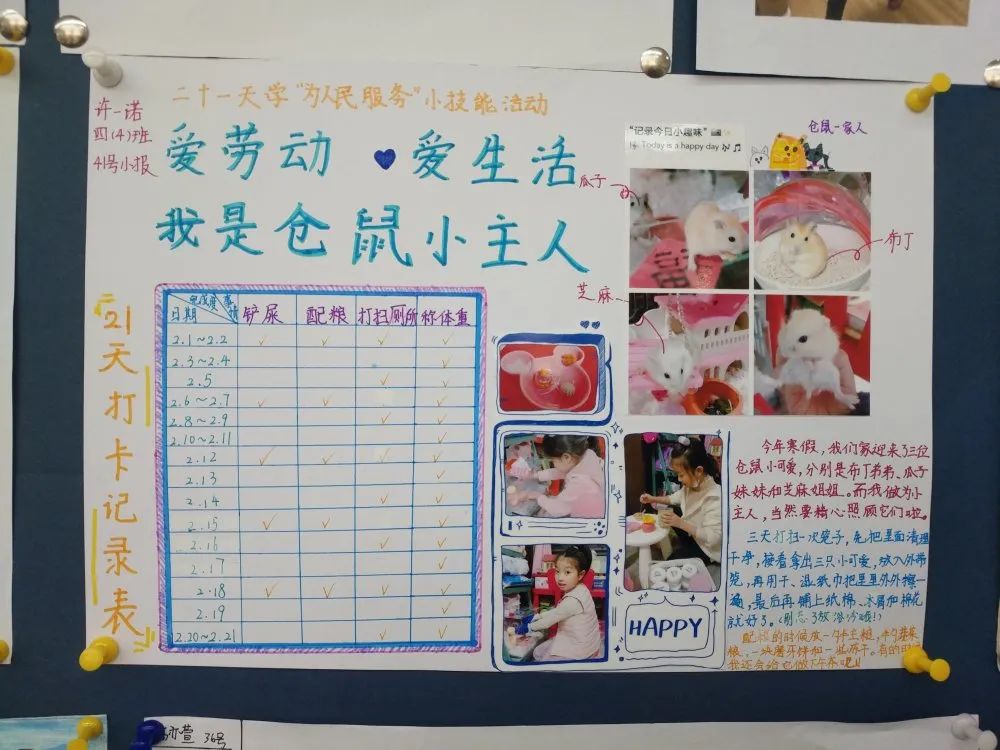 二十一天学"为人民服务"小技能活动
许一诺
四(4)班
41号小报
爱劳动 爱生活
我是仓鼠小主人
"记录今日小趣味"
Today is a happy day
仓鼠一家人
瓜子
布丁
芝麻
21天打卡记录表
完成度 事情 日期 铲尿 配粮 打扫厕所 称体重
2.1~2.2 ✓ ✓ ✓ ✓
2.3~2.4 ✓
2.5 ✓ ✓
2.6~2.7 ✓ ✓ ✓
2.8~2.9 ✓ ✓
2.10~2.11 ✓
2.12 ✓ ✓ ✓ ✓
2.13 ✓
2.14 ✓ ✓
2.15 ✓ ✓ ✓
2.16 ✓ ✓
2.17 ✓
2.18 ✓ ✓ ✓ ✓
2.19 ✓
2.20~2.21 ✓ ✓
HAPPY
今年寒假,我们家迎来了三位
仓鼠小可爱,分别是布丁弟弟、瓜子
妹妹和芝麻姐姐。而我做为小
主人,当然要精心照顾它们啦。
三天打扫一次笼子,先把里面清理
干净,接着拿出三只小可爱,放入外带
笼,再用干、湿纸巾把里里外外擦一
遍,最后再铺上纸棉、木屑加棉花
就好了。(别忘了放浴沙哦!)
配粮的时候放一勺主粮,
粮,一块磨牙饼和一些冻干。有的时
我还会给它做下午茶吧!!
36号